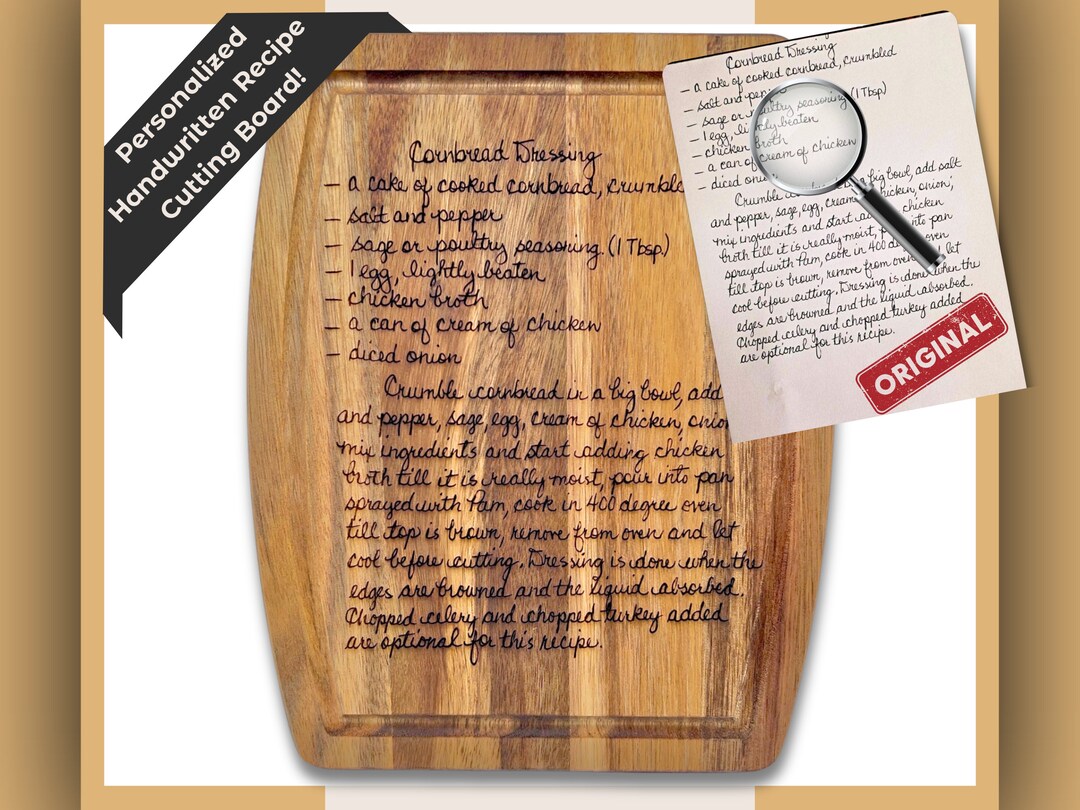 Personalized
Handwritten Recipe
Cutting Board!
Cornbread Dressing
– a cake of cooked cornbread, crumble
– salt and pepper
– sage or poultry seasoning (1 Tbsp)
– 1 egg, lightly beaten
– chicken broth
– a can of cream of chicken
– diced onion
Crumble cornbread in a big bowl, add
and pepper, sage, egg, cream of chicken, onion
mix ingredients and start adding chicken
broth till it is really moist, pour into pan
sprayed with Pam, cook in 400 degree oven
till top is brown, remove from oven and let
cool before cutting. Dressing is done when the
edges are browned and the liquid absorbed.
Chopped celery and chopped turkey added
are optional for this recipe.
Cornbread Dressing
– a cake of cooked cornbread, crumbled
– salt and pep
– sage or poultry seasoning (1 Tbsp)
– 1 egg, lightly beaten
– chicken broth
– a can of cream of chicken
– diced oni
Crumble a big bowl, add salt
and pepper, sage, egg, cream chicken, onion,
mix ingredients and start ad chicken
broth till it is really moist, p into pan
sprayed with Pam, cook in 400 deg oven
till top is brown, remove from oven let
cool before cutting. Dressing is done when the
edges are browned and the liquid absorbed.
Chopped celery and chopped turkey added
are optional for this recipe.
ORIGINAL